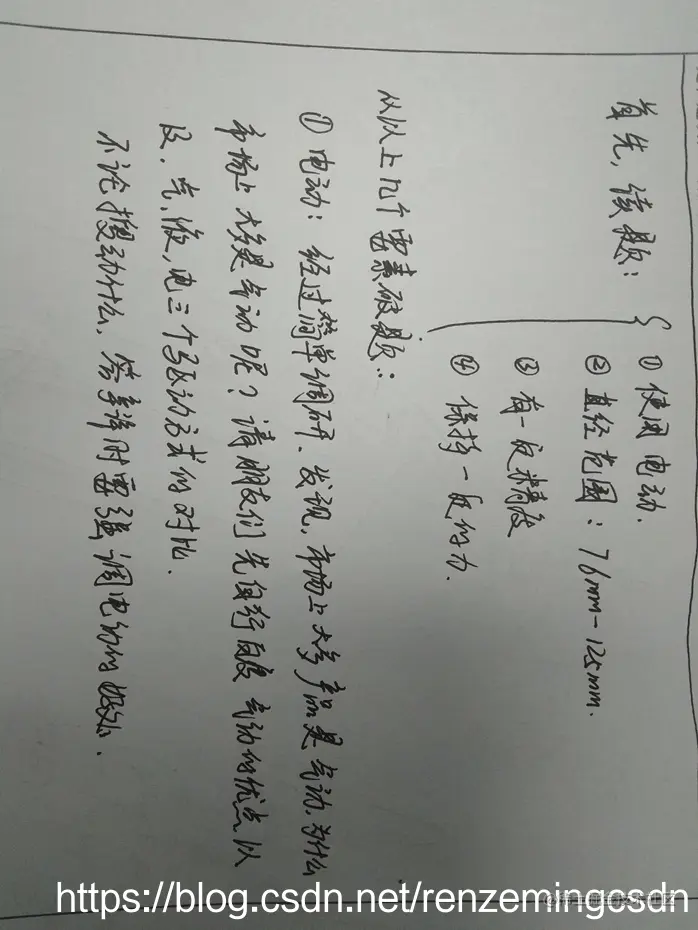 首先，读题：{ ① 使用电动.
② 直径范围：76mm-125mm.
③ 有一定精度
④ 保持一定的力.
从以上几个要素破题：
① 电动：经过简单调研、发现，市场上大多产品是气动，为什么
市场上大多是气动呢？请朋友们先自行百度气动的优点以
及、气、液，电三个驱动方式的对比.
不论撰写什么，答辩时要强调电动的好处.
https://blog.csdn.net/renzemingcsdn
@稀土掘金技术社区